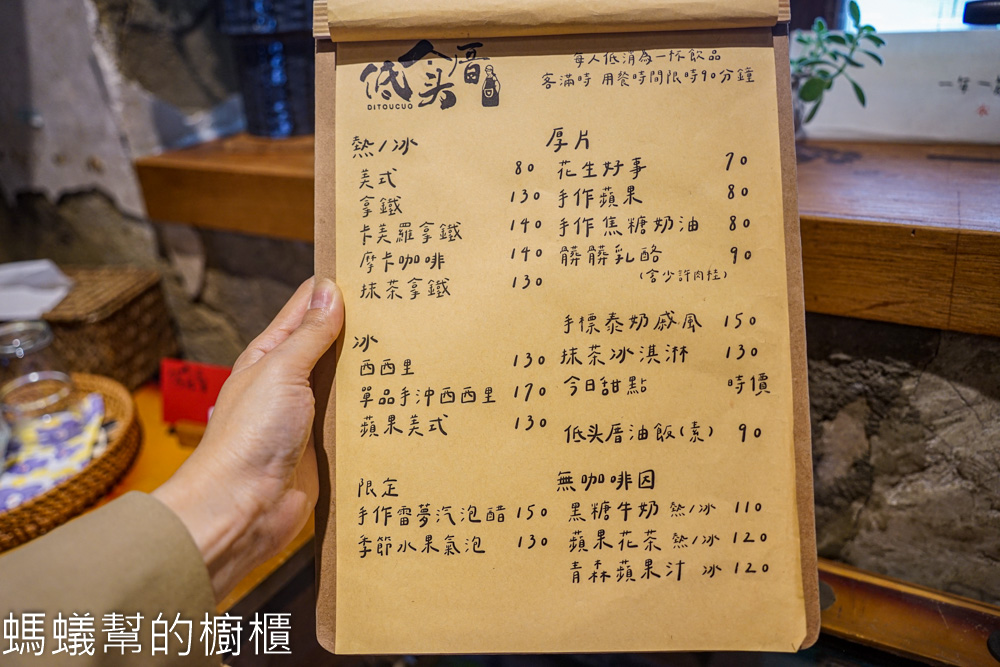 低头厝
DITOUCUO
每人低消為一杯飲品
客滿時 用餐時間限時90分鐘
熱/冰
美式 80
拿鐵 130
卡美羅拿鐵 140
摩卡咖啡 140
抹茶拿鐵 130
冰
西西里 130
單品手沖西西里 170
蘋果美式 130
限定
手作雷夢汽泡醋 150
季節水果氣泡 130
厚片
花生好事 70
手作蘋果 80
手作焦糖奶油 80
髒髒乳酪 90
(含少許肉桂)
手標泰奶戚風 150
抹茶冰淇淋 130
今日甜點 時價
低头厝油飯(素) 90
無咖啡因
黑糖牛奶 熱/冰 110
蘋果花茶 熱/冰 120
青森蘋果汁 冰 120
螞蟻幫的櫥櫃